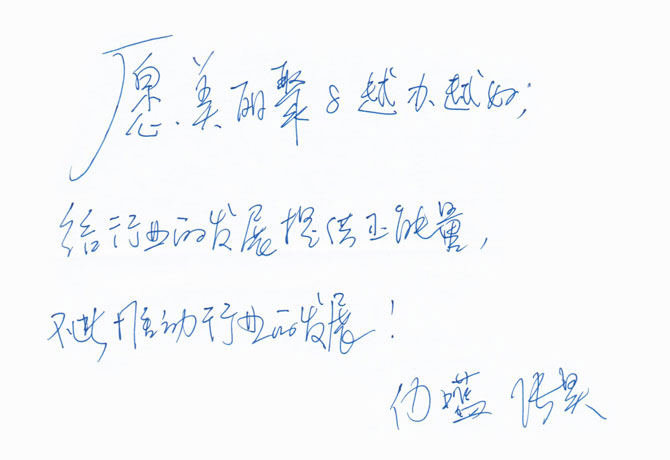 愿美丽聚8越办越好;
给行业的发展提供正能量,
不断推动行业的发展!
张昊